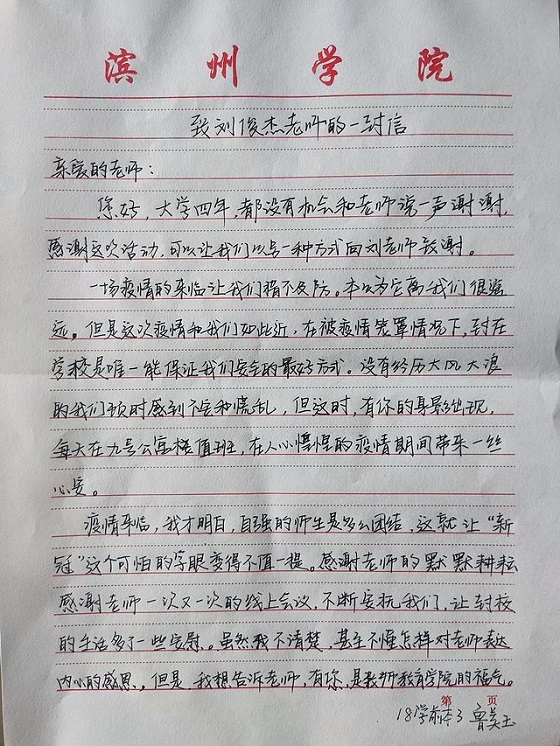 滨州学院
致刘俊杰老师的一封信
亲爱的老师：
您好，大学四年，都没有机会和老师说一声谢谢，
感谢这次活动，可以让我们以另一种方式向刘老师致谢。
一场疫情的来临让我们措不及防。本以为它离我们很遥
远。但是这次疫情和我们如此近，在被疫情笼罩情况下，封在
学校是唯一能保证我们安全的最好方式。没有经历大风大浪
的我们顿时感到不安和慌乱，但这时，有你的身影出现，
每天在九号公寓楼值班，在人心惶惶的疫情期间带来一丝
心安。
疫情来临，我才明白，自强的师生是多么团结，这就让“新
冠”这个可怕的字眼变得不值一提。感谢老师的默默耕耘
感谢老师一次又一次的线上会议，不断安抚我们，让封校
的生活多了一些安慰。虽然我不清楚，甚至不懂怎样对老师表达
内心的感恩。但是，我想告诉老师，有你，是教师教育学院的福气。
第 页
18学前本3